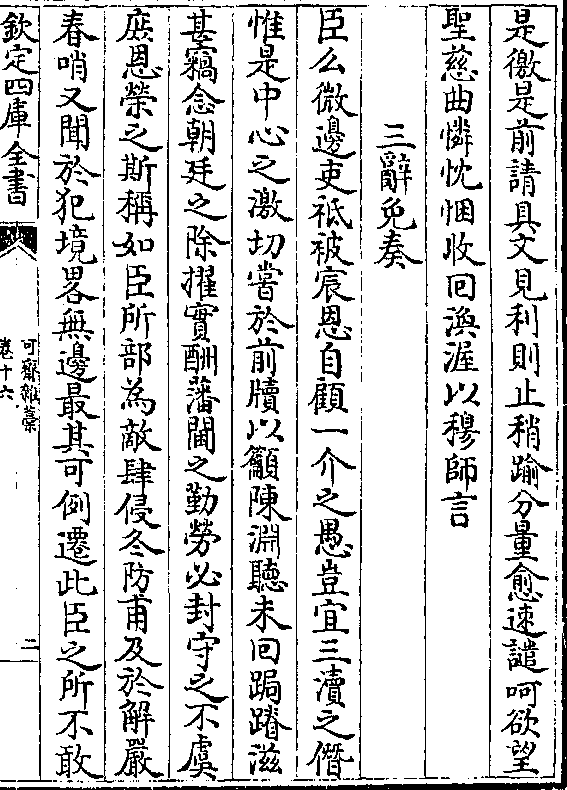 是徼是前請具文見利則止稍踰分量愈速譴呵欲望
聖慈曲憐忱悃收回渙渥以穆師言
三辭免奏
臣么微邊吏祗被宸恩自顧一介之愚豈宜三瀆之僭
惟是中心之激切嘗於前牘以籲陳淵聽未回跼蹐滋
甚竊念朝廷之除擢實酬藩閫之勤勞必封守之不虞
庶恩榮之斯稱如臣所部為敵肆侵冬防甫及於解嚴
春哨又聞於犯境畧無邊最其可例遷此臣之所不敢
欽定四庫全書
可齋雜藁
卷十六
二